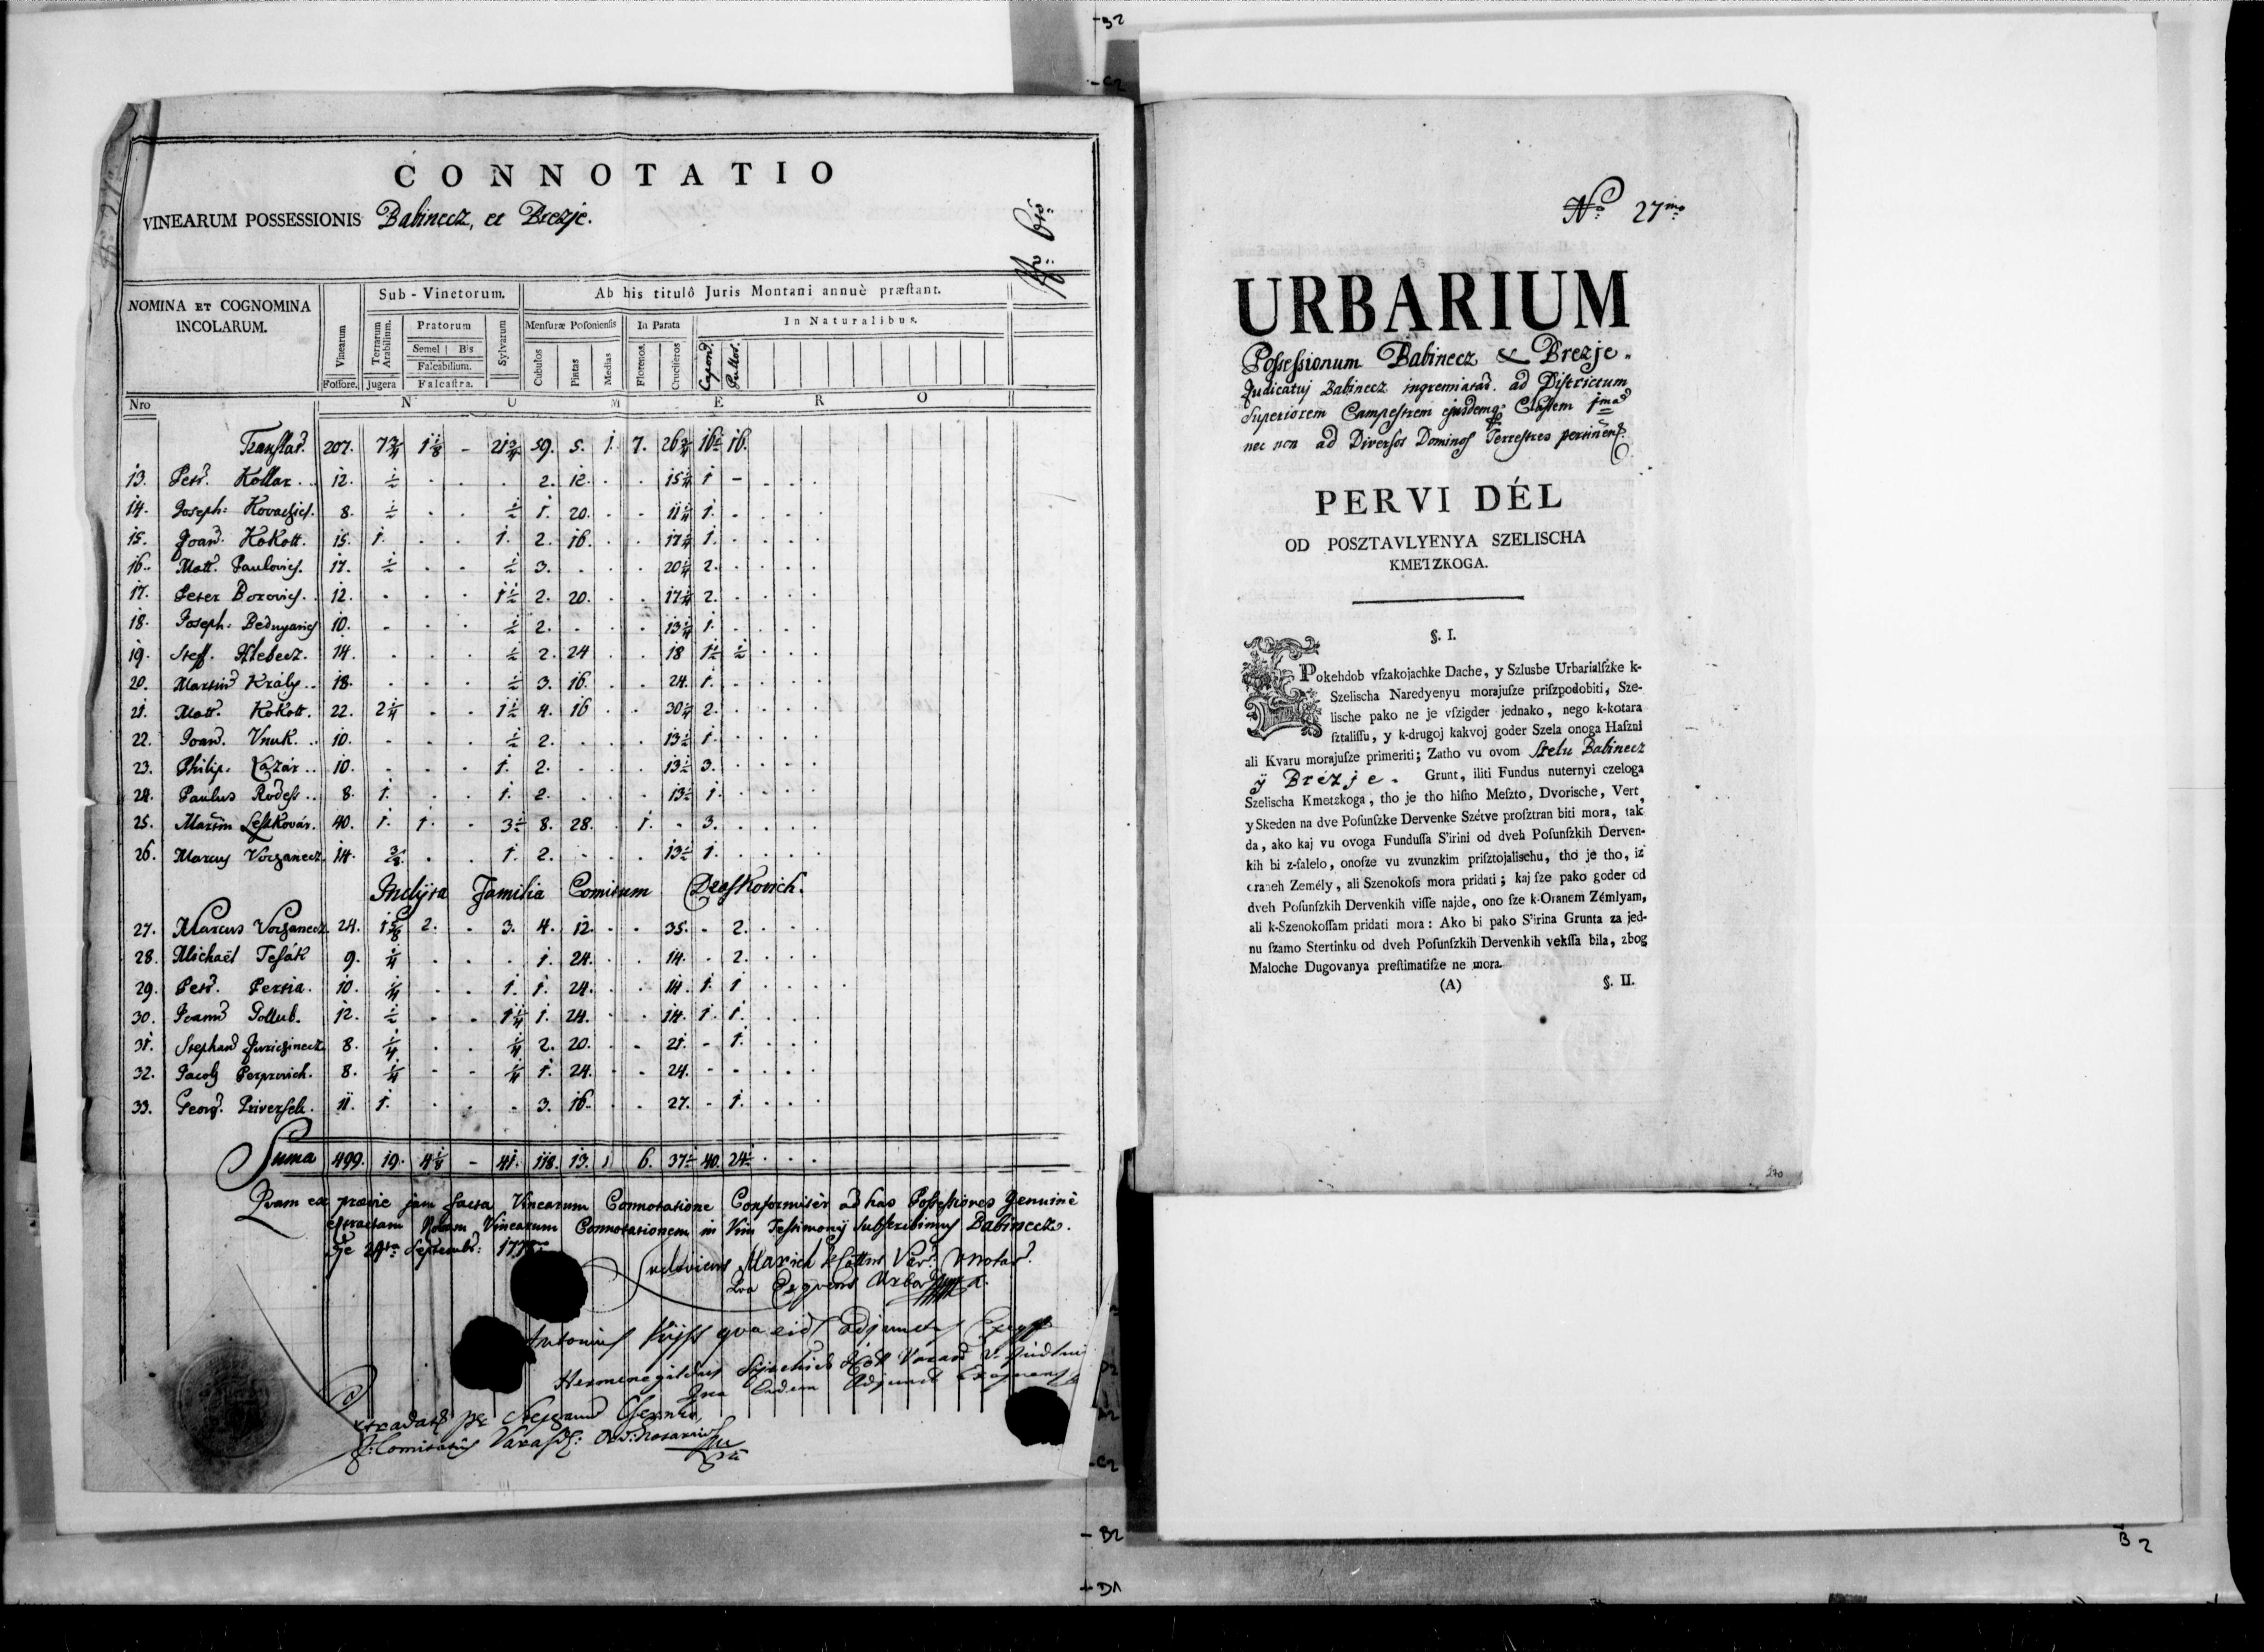 CONNOTATIO
VINEARUM POSSESSIONIS Babinecz, et Brezje.
NOMINA ET COGNOMINA INCOLARUM.
Vinearum
Fossore.
Sub-Vinetorum.
Terrarum Arabilium.
Jugera
Pratorum
Semel | Bis
Falcabilium.
Falcastra.
Sylvarum
Ab his titulô Juris Montani annuè præstant.
Mensuræ Posoniensis
Cubulos
Pintas
Medias
In Parata
Florenos.
Cruciferos
In Naturalibus.
Capon.
Pullos.
Nro N U M E R O
Translat. 207. 7 3/4 1 1/8 - 21 3/4 59. 5. 1. 7. 26 3/4 16 1/2 16.
13. Pet. Kollar. . 12. 1/2 . . . 2. 12. . . 15 3/4 1 -
14. Joseph: Kovachich. 8. 1/2 . . 1/2 1. 20. . . 11 1/4 1. -
15. Joan. Kokott. 15. 1. . . 1. 2. 16. . . 17 1/4 1. .
16. Matt. Paulovich. 17. 1/2 . . 1/2 3. . . . 20 1/4 2. .
17. Peter Borovich. . 12. . . . 1 1/2 2. 20. . . 17 1/4 2. .
18. Joseph. Bednyanich 10. . . . 1/2 2. . . . 13 1/4 1. .
19. Steff. Hlebecz. 14. . . . 1/2 2. 24 . . 18 1 1/2 1/2
20. Martin Kraly . . 18. . . . 1/2 3. 16. . . 24. 1. .
21. Matt. Kokott. 22. 2 1/4 . . 1 1/2 4. 16 . . 30 1/4 2. .
22. Joan. Vnuk. . . 10. . . . 1/2 2. . . . 13 1/2 1. .
23. Philip. Lazár . . 10. . . . 1. 2. . . . 13 1/2 3. .
24. Paulus . . 8. 1. . . 1. 2. . . . 13 1/2 1. .
25. Martin Leskovár. 40. 1. 1. . 3 1/2 8. 28. . 1. - 3. .
26. Marcus Vorganecz. 14. 3/8 . . 1. 2. . . . 13 1/2 1. .
Inclyta Familia Comitum Draskovich.
27. Marcus Vorganecz. 24. 1 5/8 2. . 3. 4. 12. . . 35. - 2.
28. Michaël Tesák 9. . . . 1. 24. . . 14. - 2.
29. Pet. Persia. 10. 1/4 . . 1. 1. 24. . . 14. 1. 1
30. Joann Gollub. 12. 1/2 . . 1 1/4 1. 24. . . 14. 1. 1.
31. Stephan Juriginecz 8. 1/4 . . 1/4 2. 20. . . 21. - 1.
32. Jacob 8. 1/4 - - 1/4 1. 24. . . 24. - -
33. Georg. 11. 1. . . . 3. 16. . . 27. - 1.
Summa 499. 19. 4 1/8 - 41. 118. 13. 1 6. 37 1/2 40. 24 1/2
Quam ex prævie jam facta Vinearum Connotatione Conformiter ad has Possessiones Genuinè
extractam Novam Vinearum Connotationem in Vim Testimonij subscribimus Babinecz.
Septemb:
Ludovicus Marich
Antonius qua eid. adjunctus
Hermenegildus
Extradat. per
I. Comitatus Varasd: Ord: Notarium
Nro 27mo
URBARIUM
Possessionum Babinecz & Brezje.
Judicatui Babinecz ingremiatar. ad Districtum
Superiorem Campestrem ejusdemq Classem 1mam
nec non ad Diversos Dominos Terrestres pertinent.
PERVI DÉL
OD POSZTAVLYENYA SZELISCHA
KMETZKOGA.
§. I.
Pokehdob vſzakojachke Dache, y Szlusbe Urbarialſzke k-
Szelischa Naredyenyu morajuſze priſzpodobiti, Sze-
lische pako ne je vſzigder jednako, nego k-kotara
ſztaliſſu, y k-drugoj kakvoj goder Szela onoga Haſzni
ali Kvaru morajuſze primeriti; Zatho vu ovom Szelu Babinecz
ÿ Brézje. Grunt, iliti Fundus nuternyi czeloga
Szelischa Kmetzkoga, tho je tho hiſno Meſzto, Dvorische, Vert,
y Skeden na dve Poſunſzke Dervenke Szétve proſztran biti mora, tak
da, ako kaj vu ovoga Funduſſa S'irini od dveh Poſunſzkih Derven-
kih bi z-falelo, onoſze vu zvunzkim priſztojalischu, tho je tho, iz
oraneh Zemély, ali Szenokoſs mora pridati; kaj ſze pako goder od
dveh Poſunſzkih Dervenkih viſſe najde, ono ſze k-Oranem Zémlyam,
ali k-Szenokoſſam pridati mora: Ako bi pako S'irina Grunta za jed-
nu ſzamo Stertinku od dveh Poſunſzkih Dervenkih vekſſa bila, zbog
Maloche Dugovanya preſtimatiſze ne mora.
(A) §. II.
270